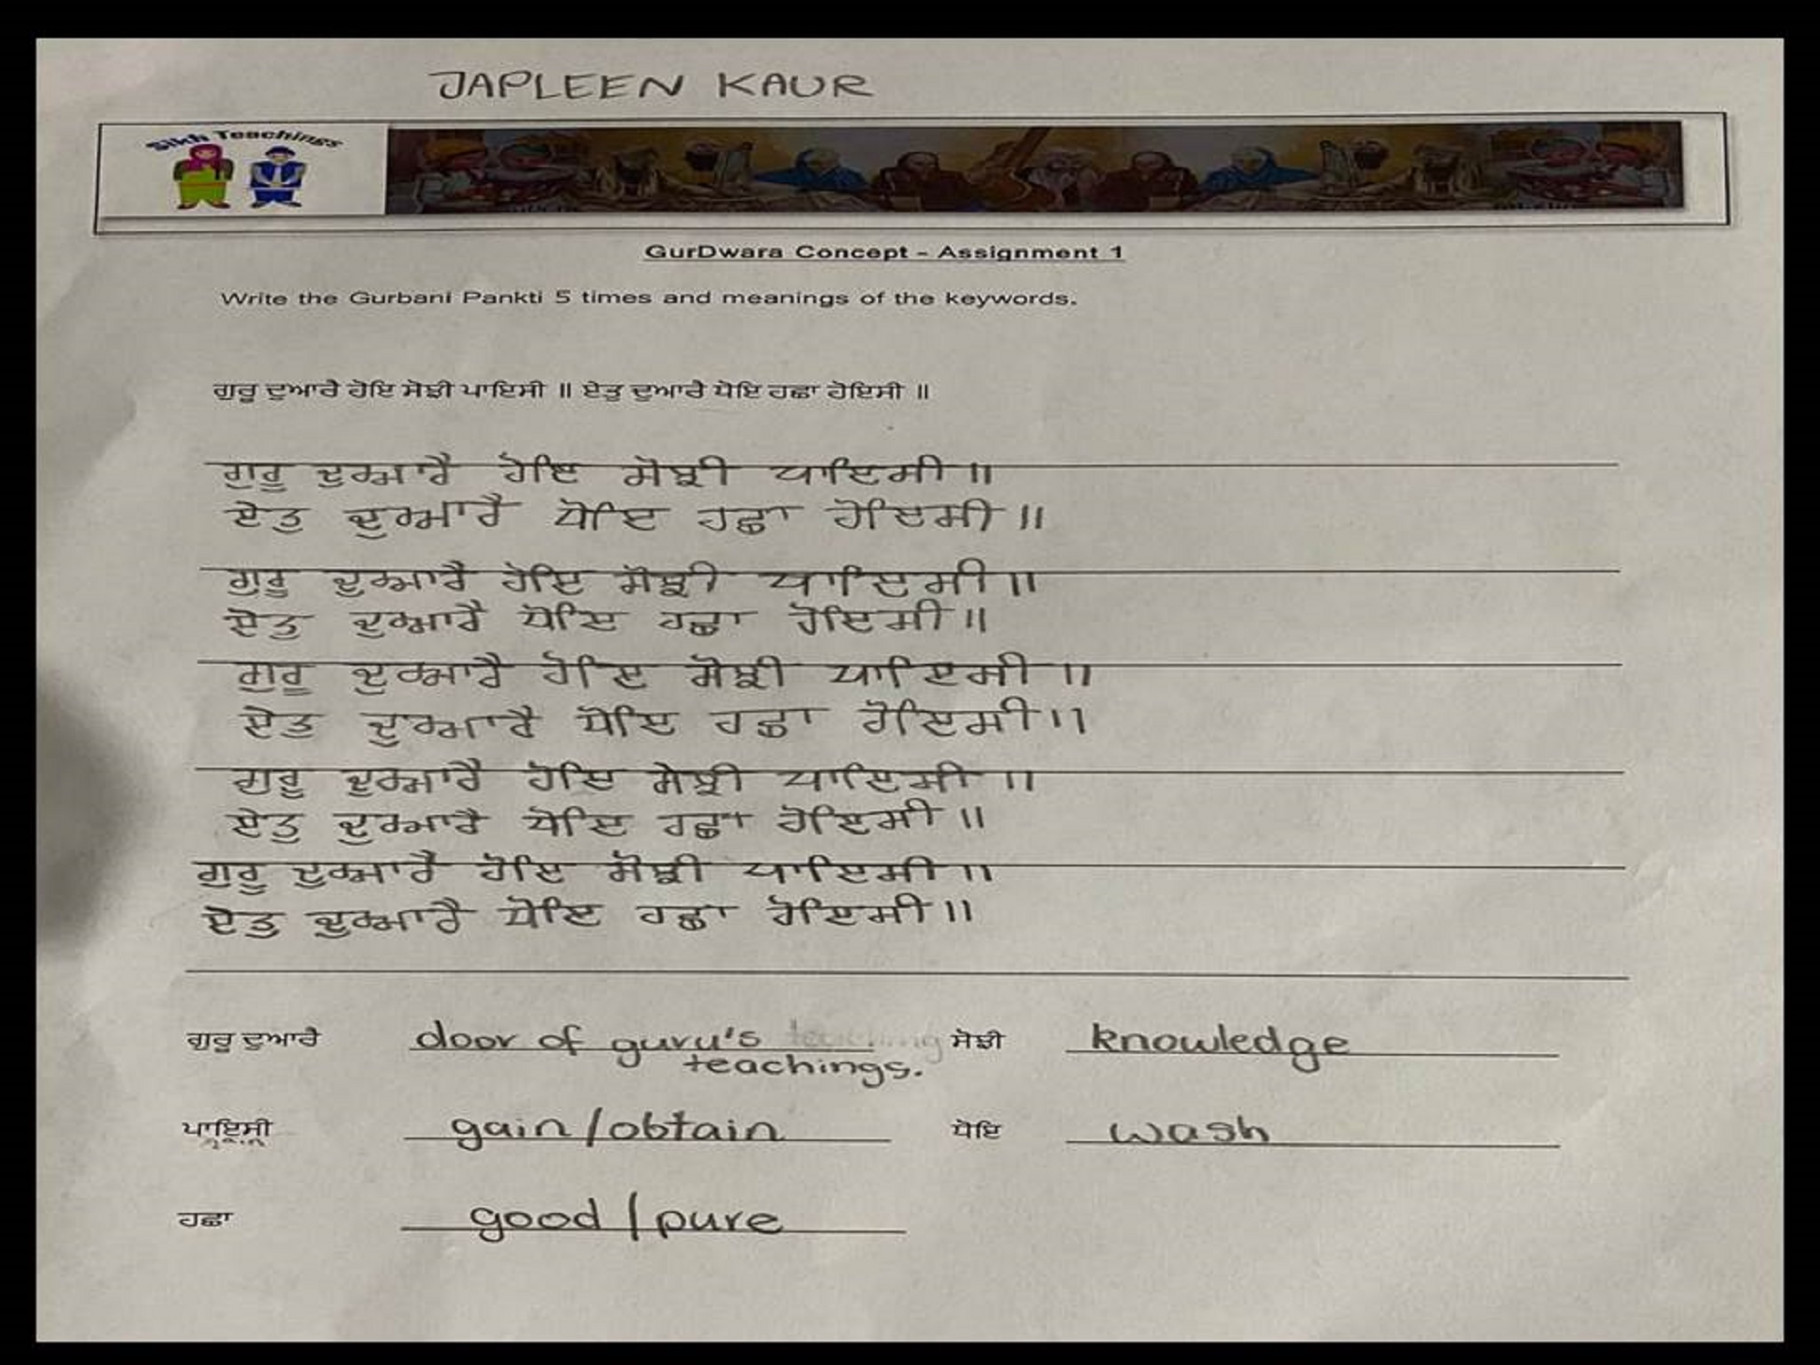 JAPLEEN KAUR
Sikh Teachings
GurDwara Concept - Assignment 1
Write the Gurbani Pankti 5 times and meanings of the keywords.
ਗੁਰੂ ਦੁਆਰੈ ਹੋਇ ਸੋਝੀ ਪਾਇਸੀ ॥ ਏਤੁ ਦੁਆਰੈ ਧੋਇ ਹਛਾ ਹੋਇਸੀ ॥
ਗੁਰੂ ਦੁਆਰੈ ਹੋਇ ਸੋਝੀ ਪਾਇਸੀ ॥
ਏਤੁ ਦੁਆਰੈ ਧੋਇ ਹਛਾ ਹੋਇਸੀ ॥
ਗੁਰੂ ਦੁਆਰੈ ਹੋਇ ਸੋਝੀ ਪਾਇਸੀ ॥
ਏਤੁ ਦੁਆਰੈ ਧੋਇ ਹਛਾ ਹੋਇਸੀ ॥
ਗੁਰੂ ਦੁਆਰੈ ਹੋਇ ਸੋਝੀ ਪਾਇਸੀ ॥
ਏਤੁ ਦੁਆਰੈ ਧੋਇ ਹਛਾ ਹੋਇਸੀ ॥
ਗੁਰੂ ਦੁਆਰੈ ਹੋਇ ਸੋਝੀ ਪਾਇਸੀ ॥
ਏਤੁ ਦੁਆਰੈ ਧੋਇ ਹਛਾ ਹੋਇਸੀ ॥
ਗੁਰੂ ਦੁਆਰੈ ਹੋਇ ਸੋਝੀ ਪਾਇਸੀ ॥
ਏਤੁ ਦੁਆਰੈ ਧੋਇ ਹਛਾ ਹੋਇਸੀ ॥
ਗੁਰੂ ਦੁਆਰੈ door of guru's ਸੋਝੀ knowledge
teachings.
ਪਾਇਸੀ gain/obtain ਧੋਇ wash
gain
ਹਛਾ good/pure